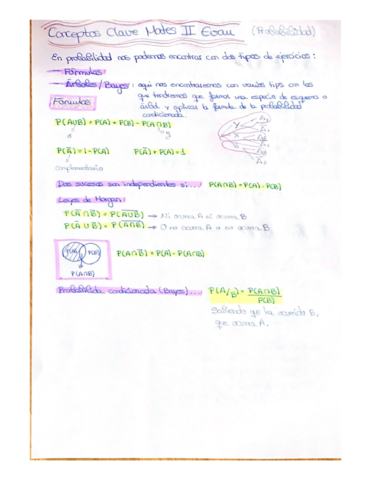 Conceptos Clave Mates II Evau (Probabilidad)
En probabilidad nos podemos encontrar con dos tipos de ejercicios:
- Fórmulas
- Árboles / Bayes: aquí nos encontraremos con varios tips con los
que tendremos que formar una especie de esquema o
árbol y aplicar la fórmula de la probabilidad
condicionada.
Fórmulas
P(A∪B) = P(A) + P(B) - P(A∩B)
o y
P(Ā) = 1 - P(A) P(Ā) + P(A) = 1
complementario
Dos sucesos son independientes si...! P(A∩B) = P(A) · P(B)
Leyes de Morgan:
P(Ā∩B̄) = P(A∪B)‾ → Ni ocurra A ni ocurra B
P(Ā∪B̄) = P(A∩B)‾ → O no ocurra A o no ocurra B
P(A) P(B) P(A∩B̄) = P(A) - P(A∩B)
P(A∩B)
Probabilidad condicionada (Bayes)... P(A/B) = P(A∩B)
P(B)
Sabiendo que ha ocurrido B,
que ocurra A.